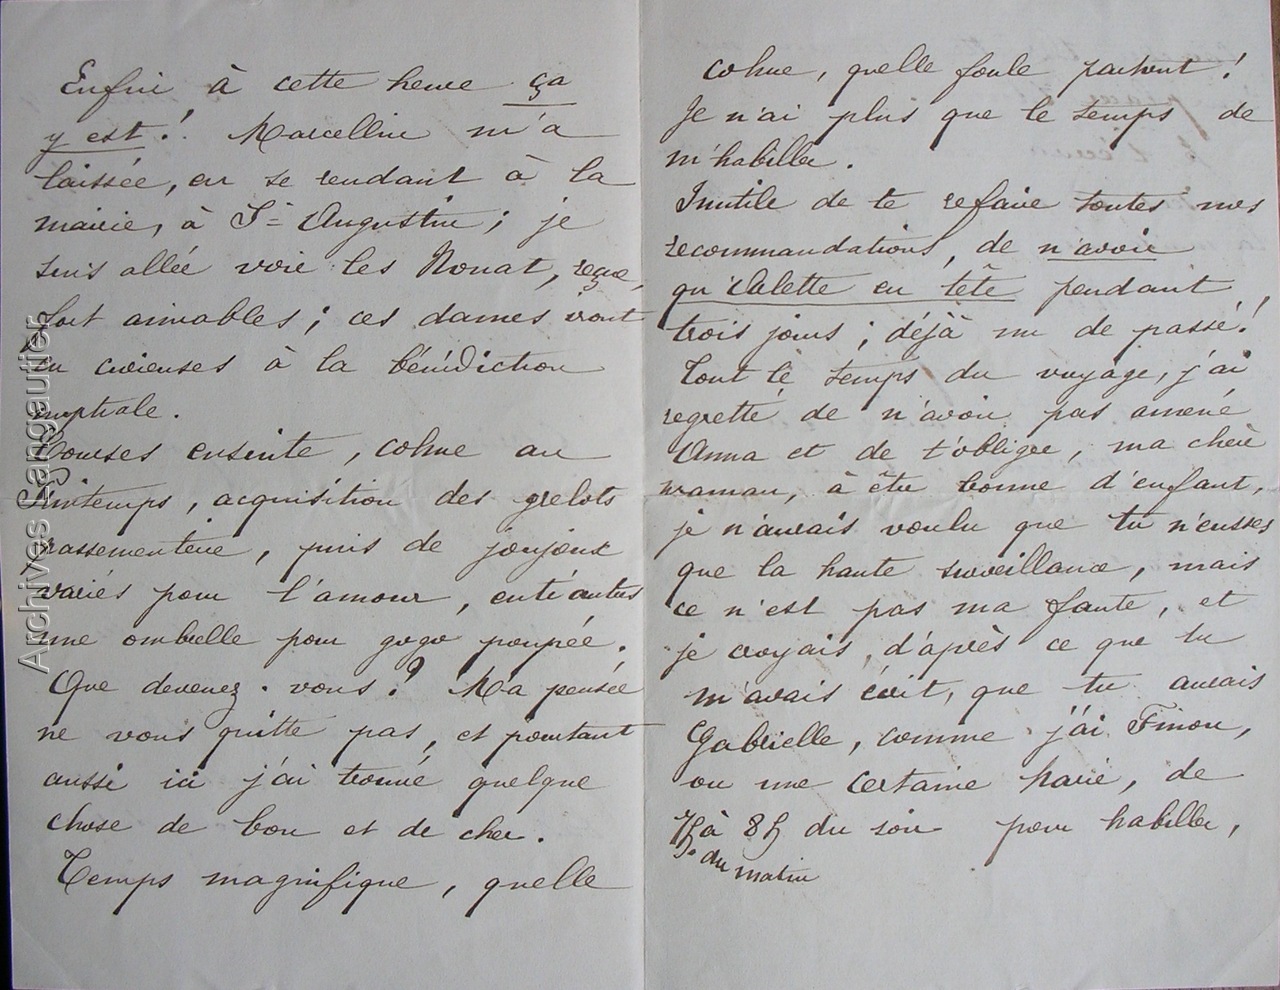 Enfin à cette heure ça
y est ! Marcelline m'a
laissée, en se rendant à la
mairie, à St= Augustin ; je
suis allée voir les Nonat, reçue,
fort aimables ; ces dames iront
en curieuses à la bénédiction
nuptiale.
Courses ensuite, cohue au
Printemps, acquisition des grelots
passementerie, puis de joujoux
variés pour l'amour, entr'autres
une ombrelle pour gogo poupée.
Que devenez-vous ? Ma pensée
ne vous quitte pas, et pourtant
aussi ici j'ai trouvé quelque
chose de bon et de cher.
Temps magnifique, quelle
cohue, quelle foule partout !
Je n'ai plus que le temps de
m'habiller.
Inutile de te refaire toutes mes
recommandations, de n'avoir
qu'Alette en tête pendant
trois jours ; déjà un de passé !
Tout le temps du voyage, j'ai
regretté de n'avoir pas amené
Anna et de t'obliger, ma chère
maman, à être bonne d'enfant,
je n'aurais voulu que tu n'eusses
que la haute surveillance, mais
ce n'est pas ma faute, et
je croyais, d'après ce que tu
m'avais écrit, que tu aurais
Gabrielle, comme j'ai Finon,
ou une certaine Marie, de
7h à 8h du soir pour habiller,
du matin
Archives Langautier